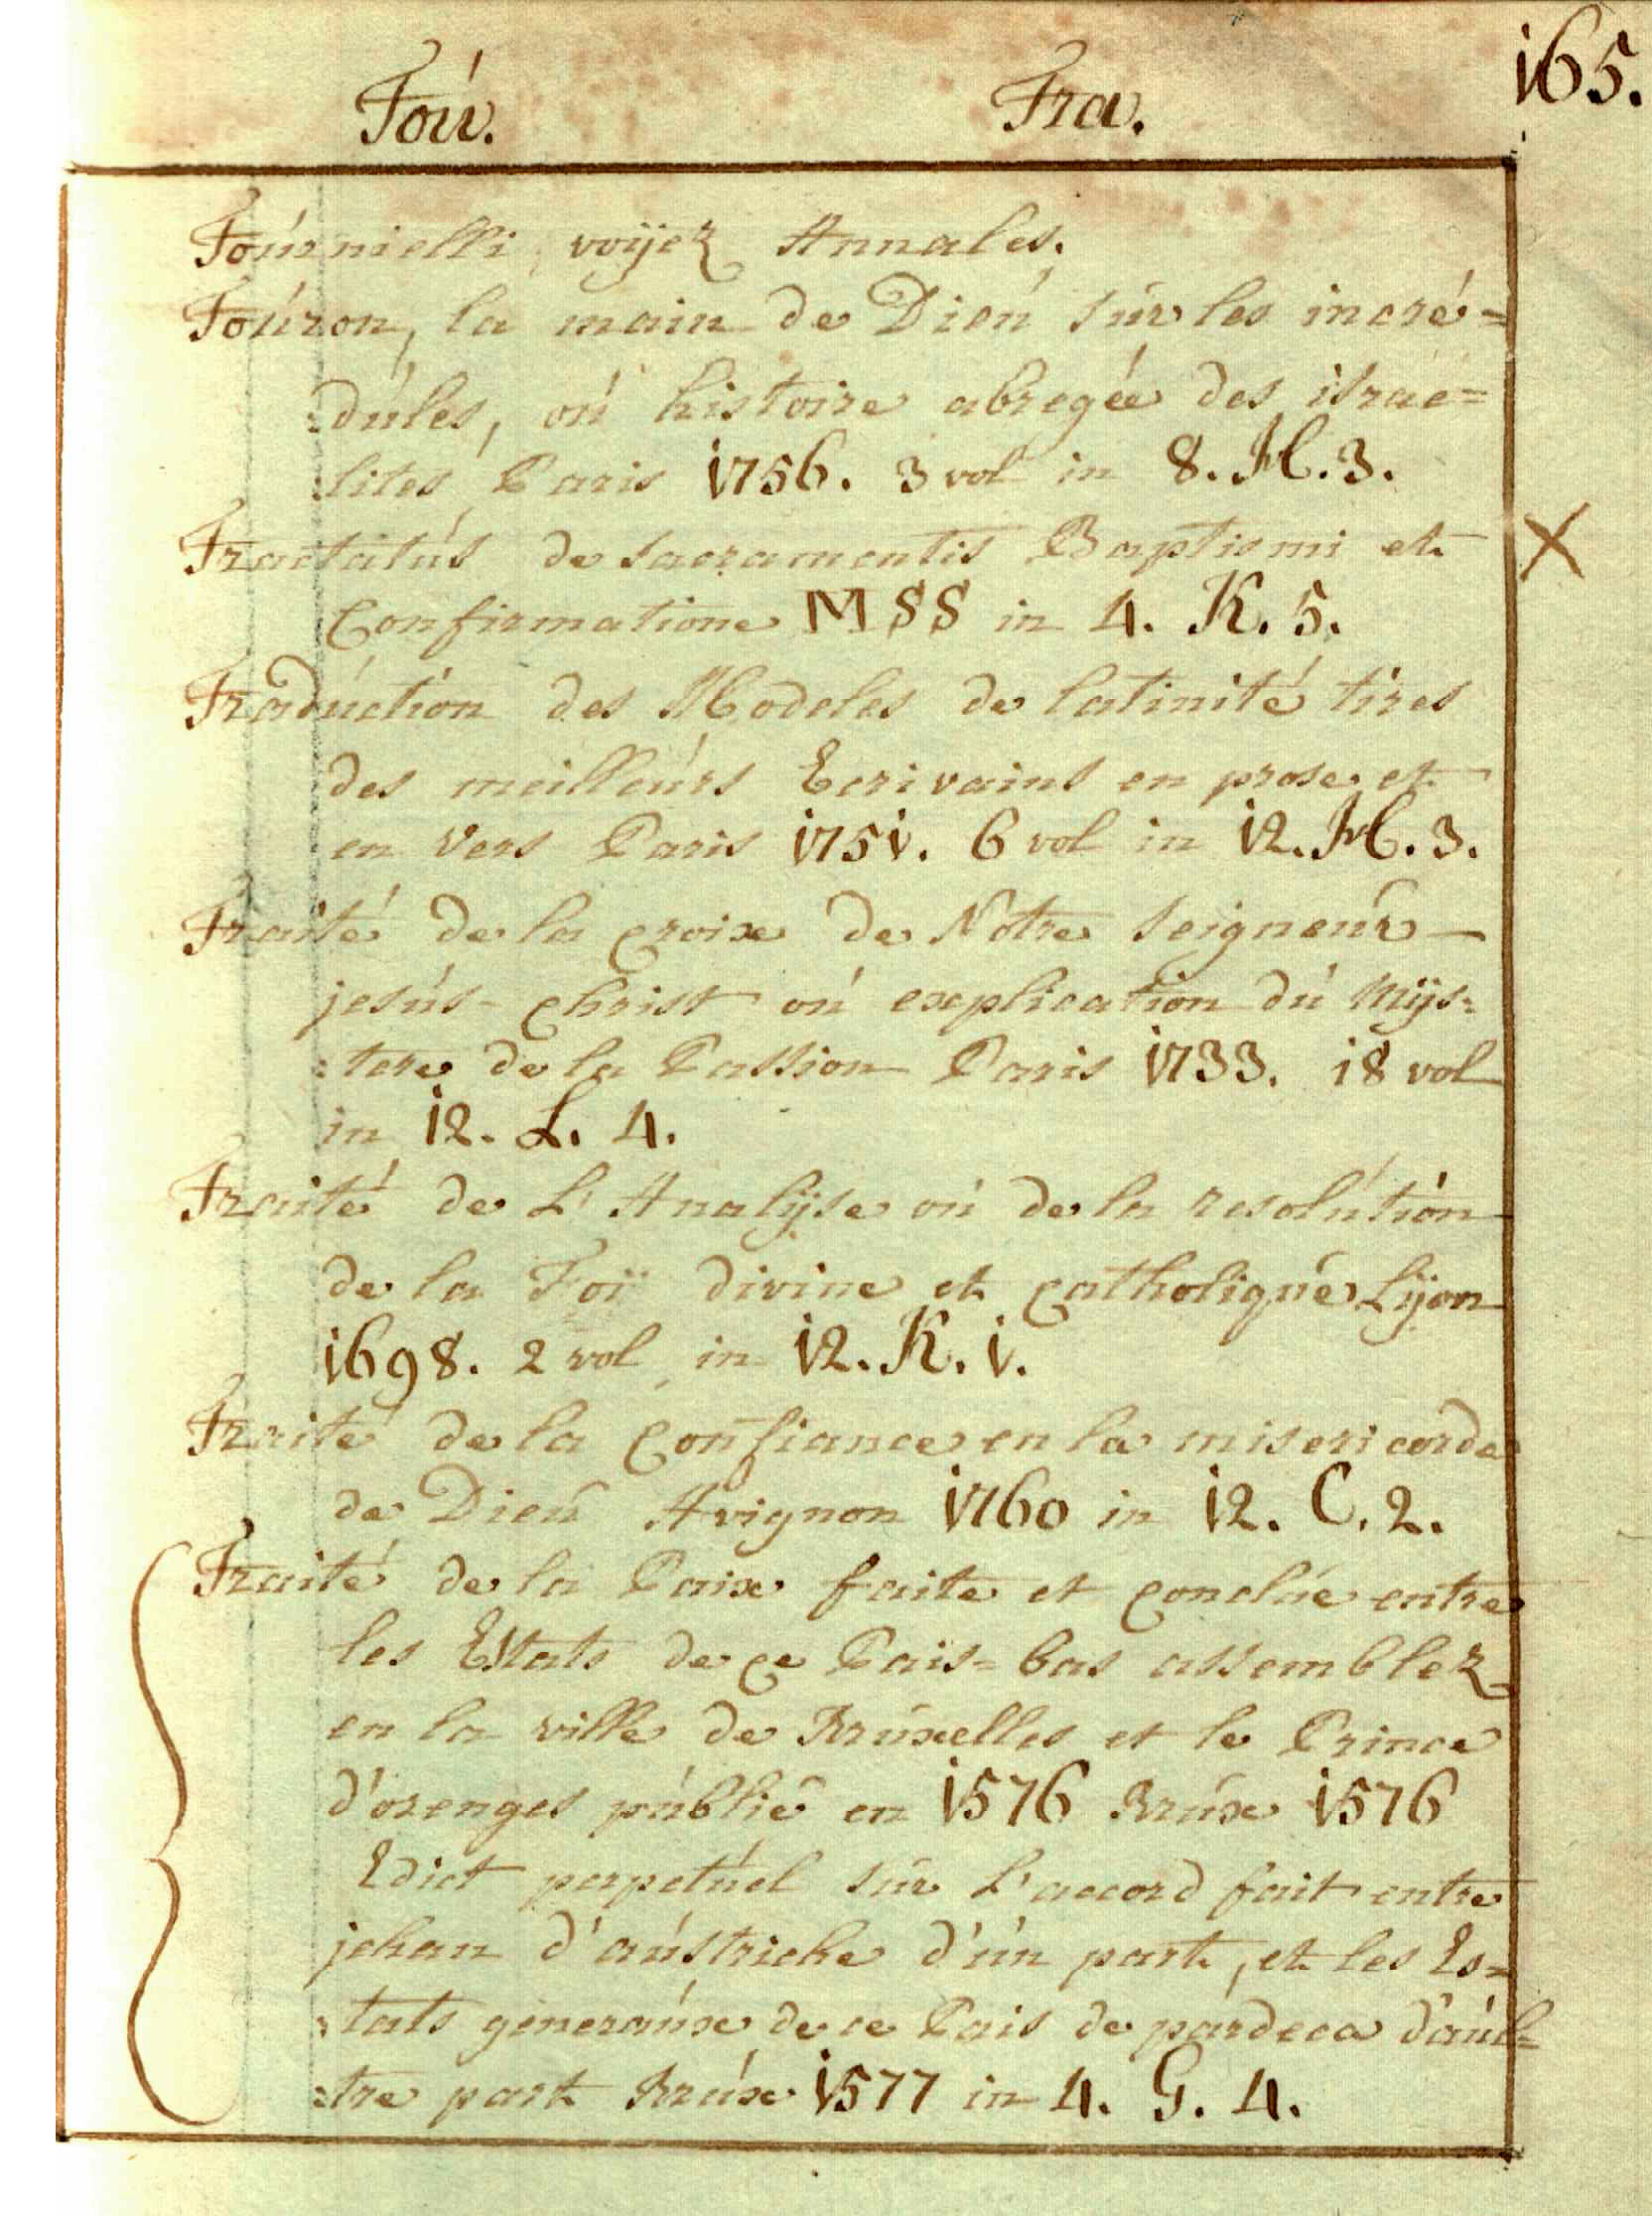 Toú. Tra. 165.
Toúrnielli voÿez Annales.
Toúron, la main de Dieú súr les incré=
:dúles, oú histoire abregée des israe=
:lites Paris 1756. 3 vol in 8. M. 3.
Tractatús de sacramentis Baptismi et X
Confirmatione MSS in 4. K. 5.
Tradúction des Modeles de latinité tires
des meilleúrs Ecrivains en prose et
en vers Paris 1751. 6 vol in 12. M. 3.
Traité de la croix de Notre seigneúr
jesús-christ oú explication dú Mÿs=
:tere de la Passion Paris 1733. 18 vol
in 12. L. 4.
Traité de L'Analÿse oú de la resolútion
de la Foÿ divine et catholiqúe Lÿon
1698. 2 vol in 12. K. 1.
Traité de la Confiance en la misericorde
de Dieú Avignon 1760 in 12. C. 2.
Traité de la Paix faite et conclúe entre
les Estats de ce Pais=bas assemblez
en la ville de Brúxelles et le Prince
d'orenges públié en 1576 Brúx 1576
Edict perpetúel súr L'accord fait entre
jehan d'aústriche d'ún part, et les Es=
:tats generaúx de ce Pais de pardeca d'aúl=
:tre part Brúx 1577 in 4. G. 4.